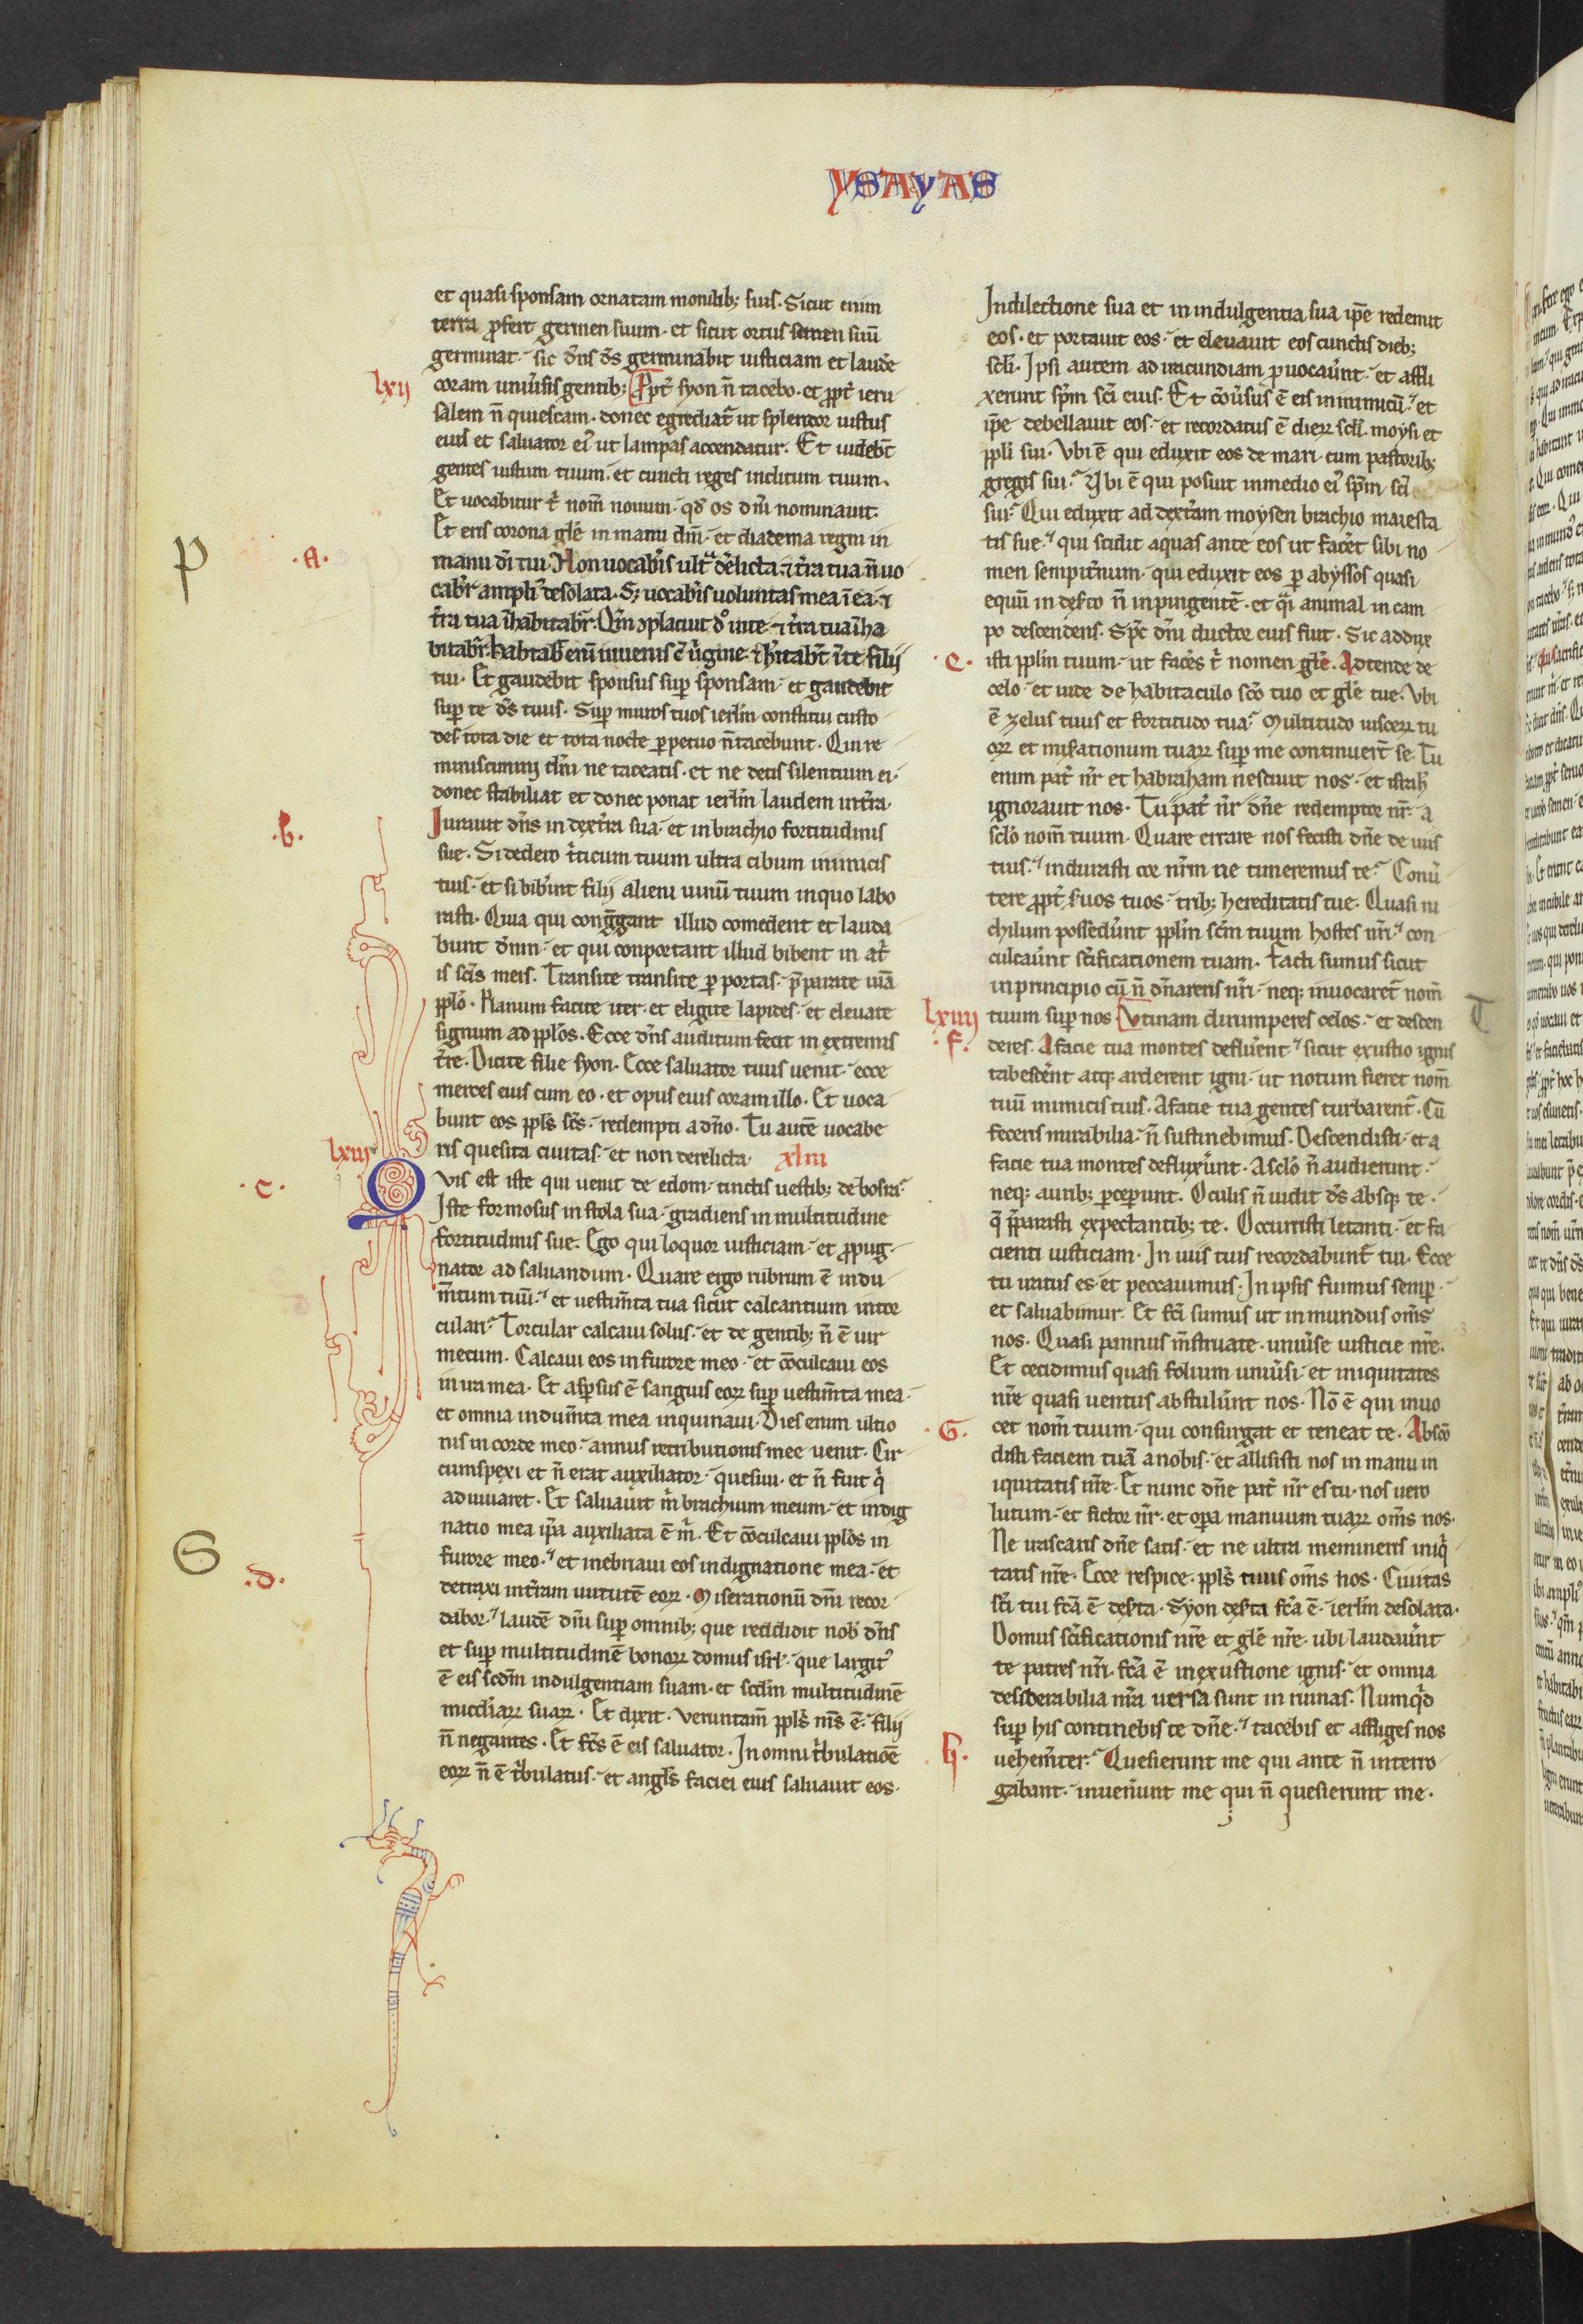 YSAYAS
et quasi sponsam ornatam monilib; suis. Sicut enim
terra ꝓfert germen suum. et sicut ortus semen suū
germinat. sic dn̄s ds̄ germinabit iusticiam et laudē
lxii
coram uniūsis gentib; Ppt̄ syon n̄ tacebo. et ꝓpt̄ ieru
salem n̄ quiescam. donec egrediat᷑ ut splendor iustus
eius et saluator ei᾽ ut lampas accendatur. Et uidebt̄
gentes iustum tuum. et cuncti reges inclitum tuum.
Et uocabitur t̄ nom̄ nouum. qd̄ os dn̄i nominauit.
Et eris corona glē in manu dn̄i. et diadema regni in
P
.A.
manu dī tui. Non uocab̄is ult̄ᵃ d̄elicta. ⁊ t̄ra tua n̄ uo
cabr̄ ampli᾽ desolata. S; uocab̄is uoluntas mea ī ea. ⁊
t̄ra tua īhabitabr̄. Qm̄ ꝯplacuit dº in te. ⁊ t̄ra tua īha
bitabr̄. habitab̄ eni iuuenis c̄ uīgine. ⁊ hītabt̄ ī te filii
tui. Et gaudebit sponsus suꝑ sponsam. et gaudebit
suꝑ te ds̄ tuus. Suꝑ muros tuos ierlm̄ constitui custo
des tota die et tota nocte ꝑpetuo n̄ tacebunt. Qui re
miniscimini dn̄i ne taceatis. et ne detis silentium ei.
donec stabiliat et donec ponat ierlm̄ laudem in t̄ra.
.b.
Iurauit dn̄s in dext̄ra sua. et in brachio fortitudinis
sue. Si dedero t̄ticum tuum ultra cibum inimicis
tuis. et si bibīnt filii alieni uinū tuum in quo labo
rasti. Quia qui congḡgant illud comedent et lauda
bunt dn̄m. et qui conportant illud bibent in at̄
is scīs meis. Transite transite ꝑ portas. p̄parate uiā
pplō. Planum facite iter. et eligite lapides. et eleuate
signum ad pplōs. Ecce dn̄s auditum fecit in extremis
t̄re. Dicite filie syon. Ecce saluator tuus uenit. ecce
merces eius cum eo. et opus eius coram illo. Et uoca
bunt eos ppls̄ scs̄. redempti a dn̄o. Tu autē uocabe
ris quesita ciuitas. et non derelicta. xliii
lxiii
.c.
Qvis est iste qui uenit de edom. tinctis uestib; de bosra?
Iste formosus in stola sua. gradiens in multitudine
fortitudinis sue. Ego qui loquor iusticiam. et ꝓpug
nator ad saluandum. Quare ergo rubrum ē indu
m̄tum tuū. et uestim̄ta tua sicut calcantium in tor
culari? Torcular calcaui solus. et de gentib; n̄ ē uir
mecum. Calcaui eos in furore meo. et cōculcaui eos
in ira mea. Et asꝑsus ē sanguis eoꝝ suꝑ uestim̄ta mea.
et omnia indum̄ta mea inquinaui. Dies enim ultio
nis in corde meo. annus retributionis mee uenit. Cir
cumspexi et n̄ erat auxiliator. quesiui. et n̄ fuit q̄
adiuuaret. Et saluauit m̄ brachium meum. et indig
natio mea ip̄a auxiliata ē m̄. Et cōculcaui pplōs in
S
.d.
furore meo. et inebriaui eos indignatione mea. et
detraxi in t̄ram uirtutē eoꝝ. Miserationū dn̄i recor
dabor. laudē dn̄i suꝑ omnib; que reddidit nob̄ dn̄s
et suꝑ multitudinē bonoꝝ domus isrl̄. que largit᾽
ē eis scdm̄ indulgentiam suam. et scdm̄ multitudinē
mīcdiaꝝ suaꝝ. Et dixit. Veruntam̄ ppls̄ ms̄ ē. filii
n̄ negantes. Et fcs̄ ē eis saluator. In omni t̄bulatiōe
eoꝝ n̄ ē t̄bulatus. et angls̄ faciei eius saluauit eos.
In dilectione sua et in indulgentia sua ip̄e redemit
eos. et portauit eos. et eleuauit eos cunctis dieb;
scl̄i. Ipsi autem ad iracundiam ꝓuocaūnt. et affli
xerunt spm̄ scī eius. Et cōuīsus ē eis in inimicū. et
ip̄e debellauit eos. et recordatus ē dieꝝ scl̄i. moysi et
ppli sui. Vbi ē qui eduxit eos de mari. cum pastorib;
gregis sui? Vbi ē qui posuit in medio ei᾽ spm̄ scī
sui? Qui eduxit ad dext̄am moysen brachio maiesta
tis sue. qui scidit aquas ante eos ut facēt sibi no
men sempit̄num. qui eduxit eos ꝑ abyssos quasi
equū in deꝼto n̄ inpingentē. et qⁱ animal in cam
po descendens. Spc̄ dn̄i ductor eius fuit. Sic addux
.e.
isti pplm̄ tuum. ut facēs t̄ nomen glē. Adtende de
celo. et uide de habitaculo scō tuo et glē tue. Vbi
ē zelus tuus et fortitudo tua? Multitudo uisceꝝ tu
oꝝ et mis̄ationum tuaꝝ suꝑ me continuert̄ se. Tu
enim pat̄ nr̄ et habraham nesciuit nos. et isrl̄
ignorauit nos. Tu pat̄ nr̄ dn̄e redemptor nr̄. a
sclō nom̄ tuum. Quare errare nos fecisti dn̄e de uiis
tuis. indurasti cor nr̄m ne timeremus te? Conū
tere ꝓpt̄ s̄uos tuos. trib; hereditatis tue. Quasi ni
chilum possedūnt pplm̄ scm̄ tuum hostes nr̄i. con
culcaūnt scīficationem tuam. facti sumus sicut
in principio cū n̄ dn̄areris nr̄i. neq; inuocaret᷑ nom̄
lxiiii
tuum suꝑ nos Vtinam dirumperes celos. et descen
T
.f.
deres. A facie tua montes deflūent. sicut exustio ignis
tabescēnt atq; arderent igni. ut notum fieret nom̄
tuū inimicis tuis. A facie tua gentes turbarent᷑. Cū
feceris mirabilia. n̄ sustinebimus. Descendisti. et a
facie tua montes defluxūnt. A sclō n̄ audierunt.
neq; aurib; ꝑceperunt. Oculis n̄ uidit ds̄ absq; te.
q̄ p̄parasti expectantib; te. Occurristi letanti. et fa
cienti iusticiam. In uiis tuis recordabunt᷑ tui. Ecce
tu iratus es. et peccauimus. In ipsis fuimus semꝑ.
et saluabimur. Et fcī sumus ut inmundus om̄s
nos. Quasi pannus m̄struate. uniūse iusticie nr̄e.
Et cecidimus quasi folium uniūsi. et iniquitates
nr̄e quasi uentus abstulūnt nos. Nō ē qui inuo
.G.
cet nom̄ tuum. qui consurgat et teneat te. Abscō
disti faciem tuā a nobis. et allisisti nos in manu in
iquitatis nr̄e. Et nunc dn̄e pat̄ nr̄ es tu. nos uero
lutum. et fictor nr̄. et oꝑa manuum tuaꝝ om̄s nos.
Ne irascaris dn̄e satis. et ne ultra memineris iniq̄
tatis nr̄e. Ecce respice. ppls̄ tuus om̄s nos. Ciuitas
scī tui fcā ē deꝼta. Syon deꝼta fcā ē. ierlm̄ desolata.
Domus scīficationis nr̄e et glē nr̄e. ubi laudaūnt
te patres nr̄i. fcā ē in exustione ignis. et omnia
desiderabilia nr̄a uersa sunt in ruinas. Numqⁱd
suꝑ his continebis te dn̄e. tacebis et affliges nos
h.
uehem̄ter? Quesierunt me qui ante n̄ interro
gabant. inuenūnt me qui n̄ quesierunt me.